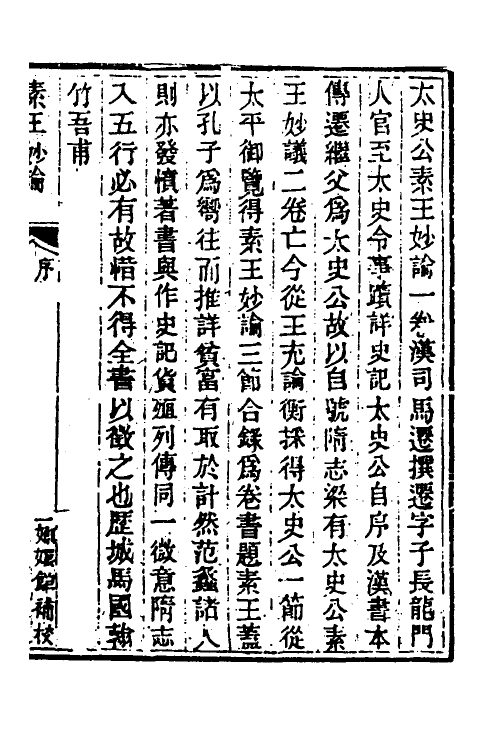 太史公素王妙論一卷漢司馬遷撰遷字子長龍門
人官至太史令事蹟詳史記太史公自序及漢書本
傳遷繼父爲太史公故以自號隋志梁有太史公素
王妙議二卷亡今從王充論衡採得太史公一節從
太平御覽得素王妙論三節合錄爲卷書題素王蓋
以孔子爲嚮往而推詳貧富有取於計然范蠡諸人
則亦發憤著書與作史記貨殖列傳同一微意隋志
入五行必有故惜不得全書以徵之也歷城馬國翰
竹吾甫
素王妙論
序
一
嫏嬛館補校